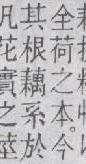 全荷之本今
其根藕系於
凡花實之莖